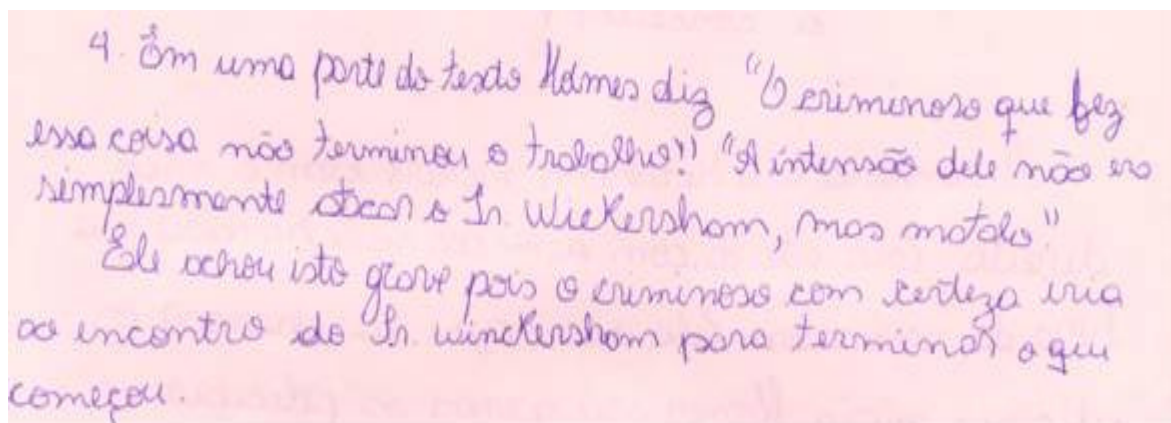 4. Em uma parte do texto Holmes diz "O criminoso que fez
essa coisa não terminou o trabalho!" "A intensão dele não era
simplesmente atacar o Sr. Wickersham, mas matalo."
Ele achou isto grave pois o criminoso com certeza iria
ao encontro do Sr. winckersham para terminar o que
começou.